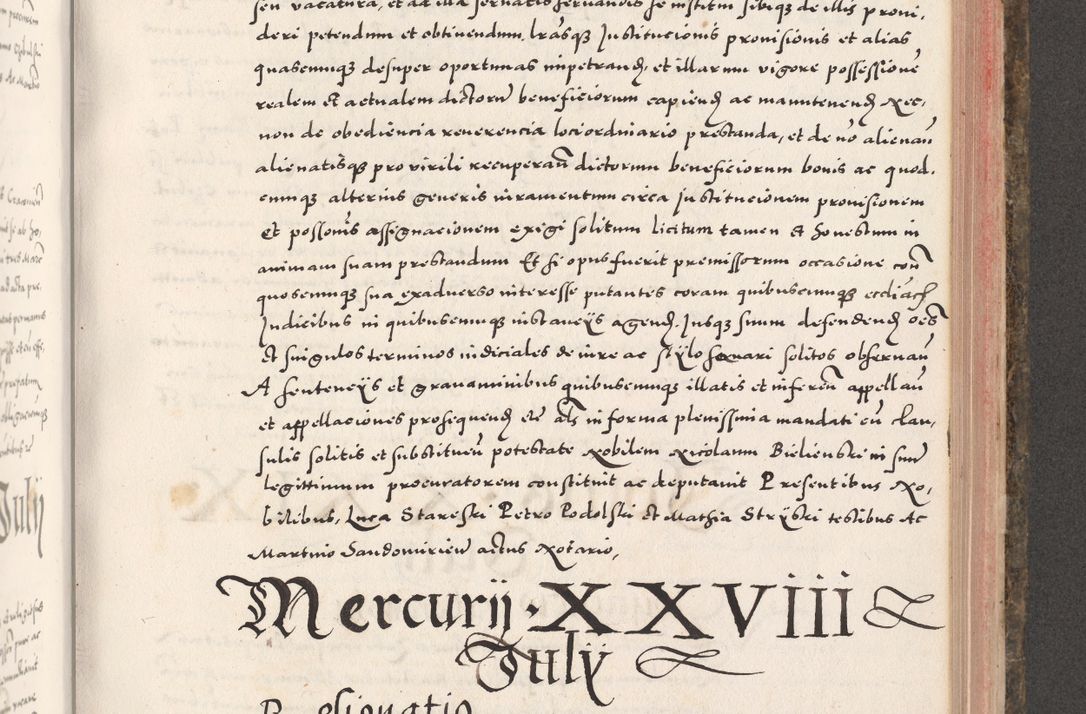 seu vacatura, et ad illa
deri petendum et obtinendum, lrasqȝ Institucionis provisionis et alias
quascunqȝ desuper oportunas impetrand, et illarum vigore possessione
realem et actualem dictoru beneficiorum capiend ac manutenend Nec,
non de obediencia reverencia loci ordinario prestanda, et de no alienan
alienatisqȝ pro virili recuperan dictorum beneficiorum bonis ac quod,
cunqȝ alterius generis iuramentum circa Institucionem provisionem
Et possonis assignacionem exigi solitum licitum tamen et honestum in
animam suam prestandum Et si opus fuerit premissorum occasione con
quoscunqȝ sua ex adverso interesse putantes coram quibuscunqȝ ecclia
Iudicibus in quibuscunqȝ instancÿs agend, Iusqȝ suum defendend oes
et singulos terminos iudiciales de iure ac stÿlo servari solitos observan
A sentencÿs et gravaminibus quibuscunqȝ illatis et inferen appellan
et appellaciones prosequend etc als in forma plenissima mandati cu clau,
sulis solitis et substituen potestate Nobilem Nicolaum Bielienski in suu
legittimum procuratorem constituit ac deputavit Presentibus No,
bilibus, Luca Stareski Petro Podolski et Mathia Strÿski testibus Ac
Martino Sandomirien actus Notario,
Mercurij · XXVIII
Julÿ
Resignatio